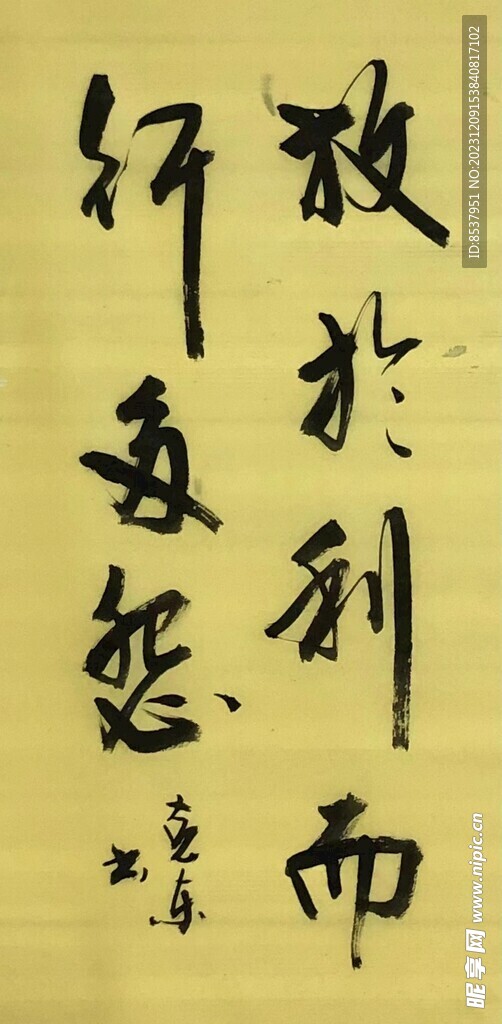 放於利而
行多怨
克东
书
ID:8537951 NO:20231209153840817102
昵享网 www.nipic.cn